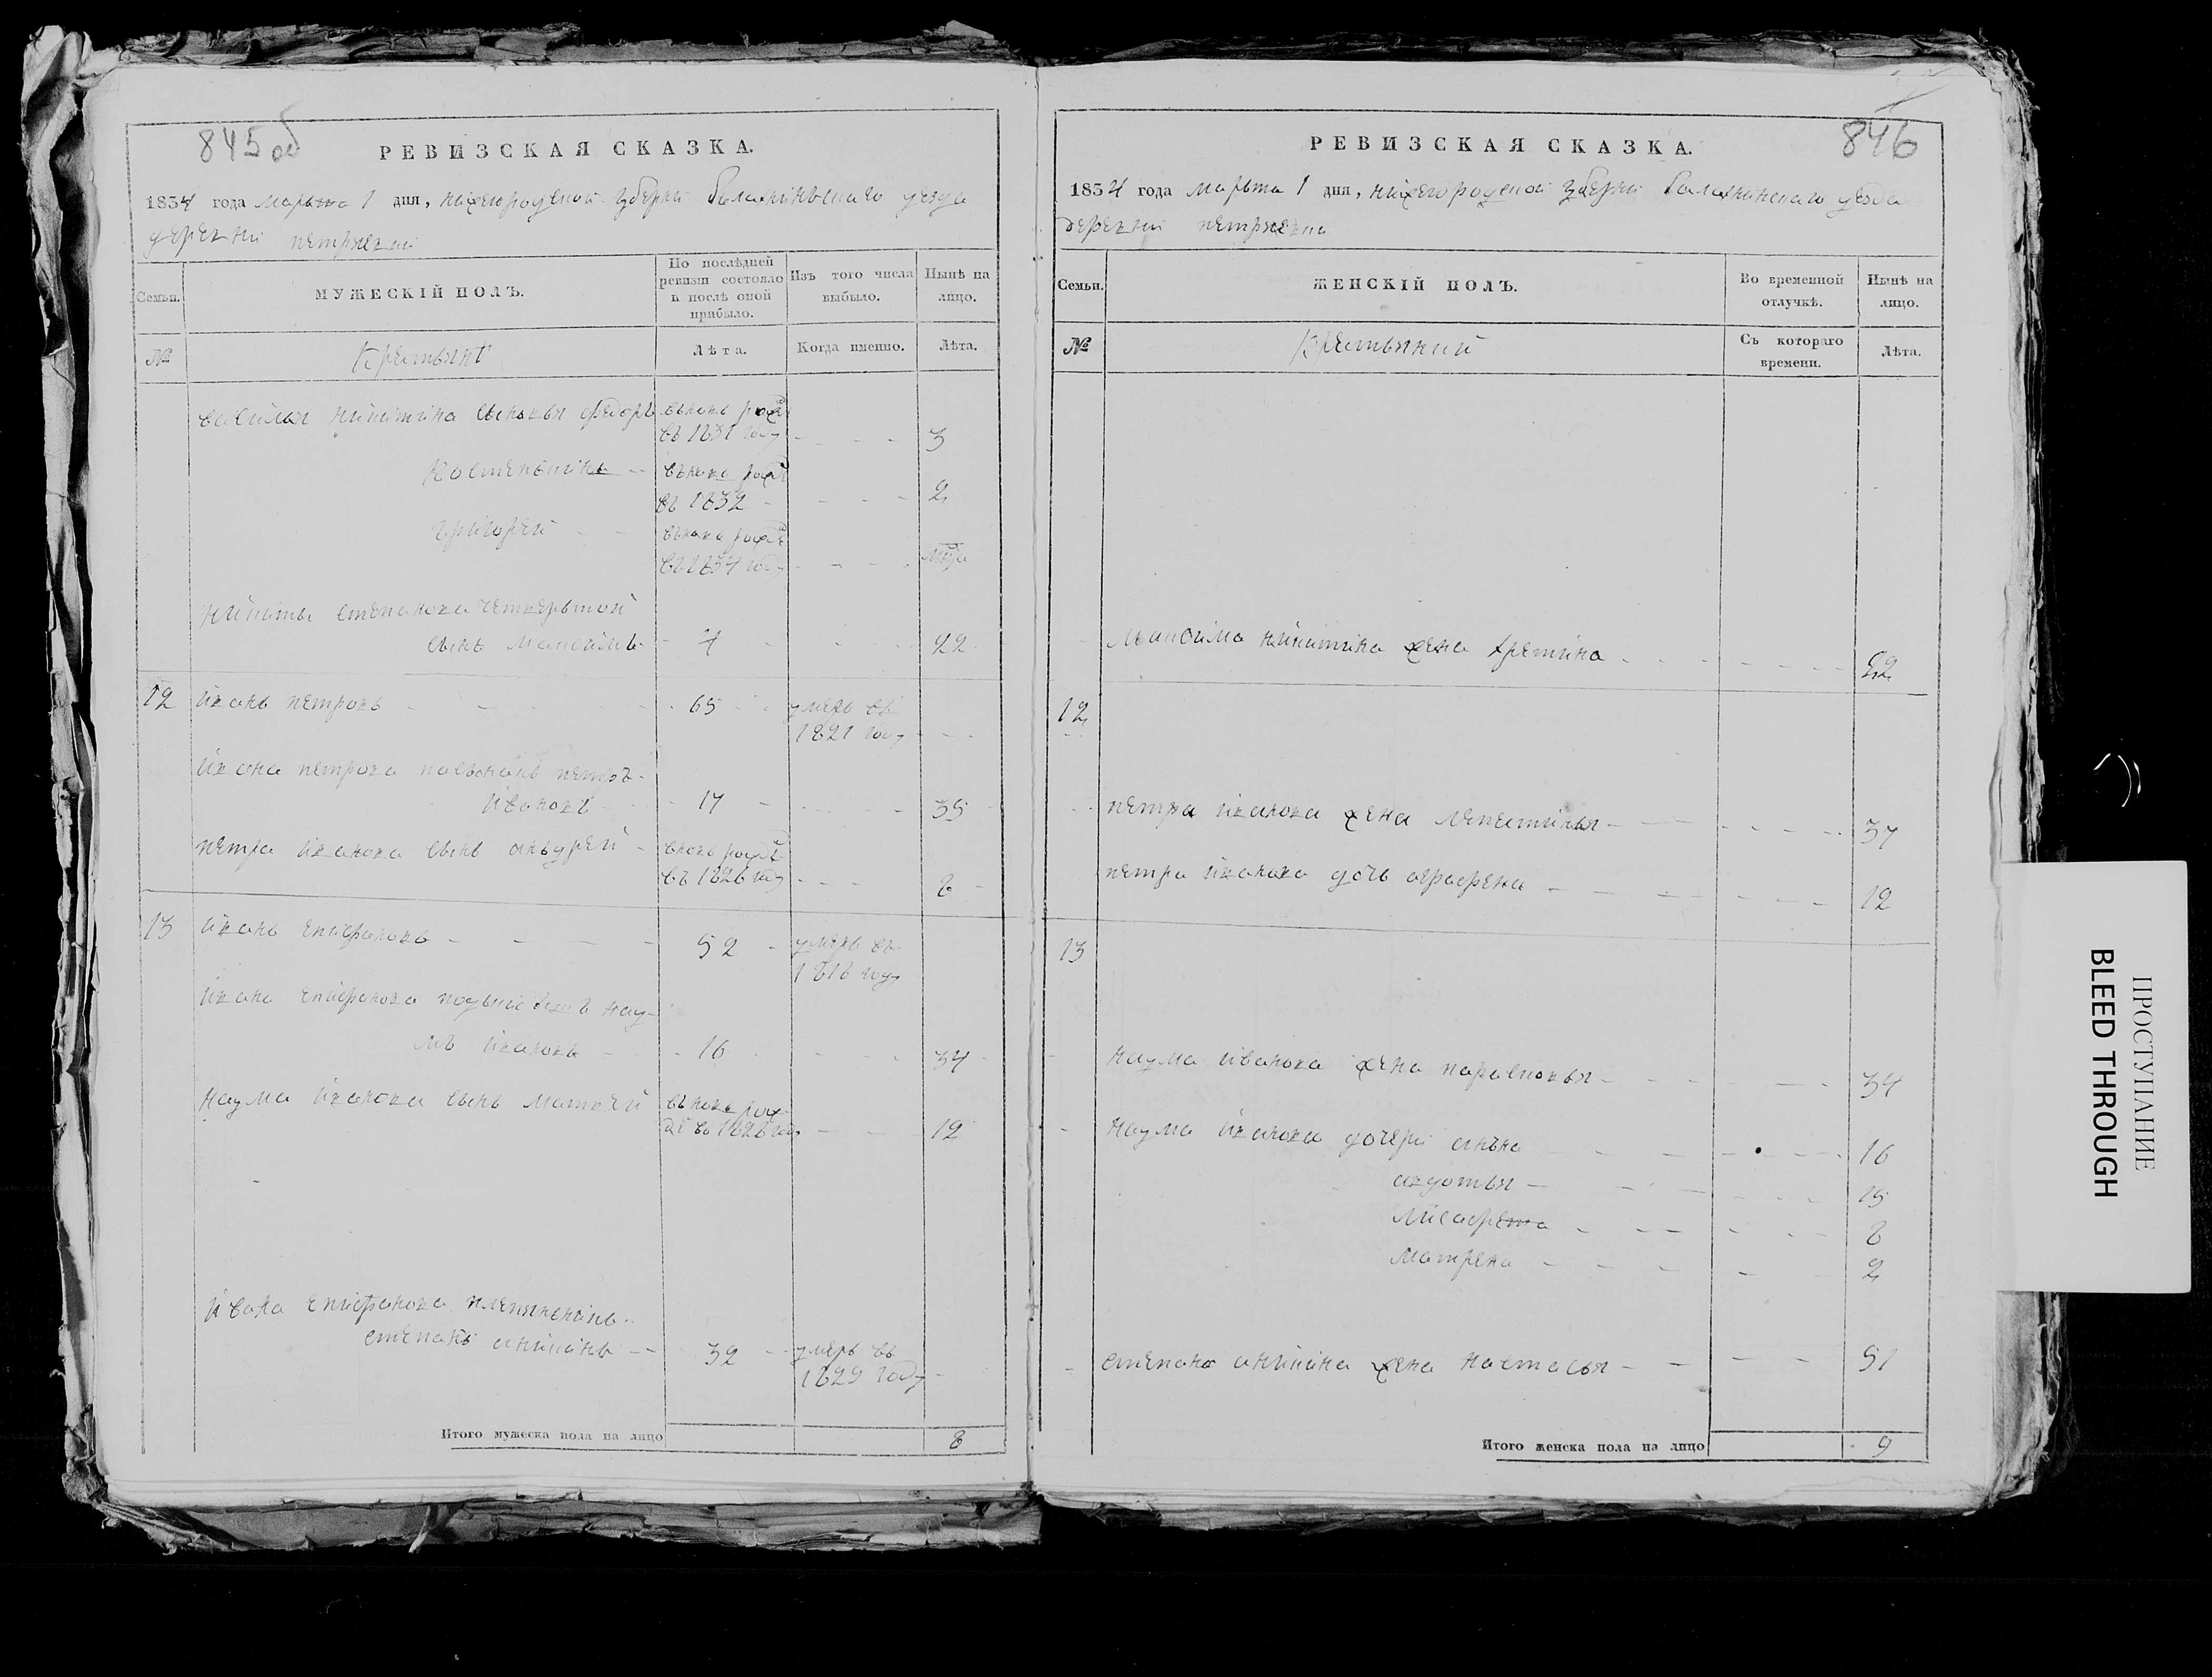 845 об
РЕВИЗСКАЯ СКАЗКА.
1834 года марьта 1 дня, нижегороцской губерни балахниньскаго уезда
деревни петряевки
Семьи.
МУЖЕСКІЙ ПОЛЪ.
По послѣдней ревизіи состояло и послѣ оной прибыло.
Изъ того числа выбыло.
Нынѣ на лицо.
№
Крестьянѣ
Лѣта.
Когда именно.
Лѣта.
василья никитина сыновья федоръ вьновь рожде
въ 1831 году 3
Костеньтинъ вьновь рожде
въ 1832 2
григорей вьновь рожде
въ 1834 году
никиты степанова четвертой
сынъ максимъ 4 22
12 иванъ петровъ 65 умеръ въ
1821 году
ивана петрова петръ
ивановъ 17 35
петра иванова сынъ аньдрей вновь рожде
въ 1826 году 8
13 иванъ епифановъ 52 умеръ въ
1818 году
ивана епифанова нау-
мъ ивановъ 16 34
наума иванова сынъ матвей вьновь рож
въ 12
ивана епифанова племяньникъ
степанъ аникинъ 32 умеръ въ
1829 году
Итого мужеска пола на лицо 8
846
РЕВИЗСКАЯ СКАЗКА.
1834 года марьта 1 дня, нижегороцской губерни балахнинскаго уезда
деревни петряевки
Семьи.
ЖЕНСКІЙ ПОЛЪ.
Во временной отлучкѣ.
Нынѣ на лицо.
№
Крестьянки
Съ котораго времени.
Лѣта.
максима никитина жена 22
12
петра иванова жена лепестинья 37
петра иванова дочь аграфена 12
13
наума иванова жена парасковья 34
наума иванова дочери аньна 16
авдотья 15
8
матрена 2
степана аникина жена настасья 51
Итого женска пола на лицо 9
ПРОСТУПАНИЕ
BLEED THROUGH